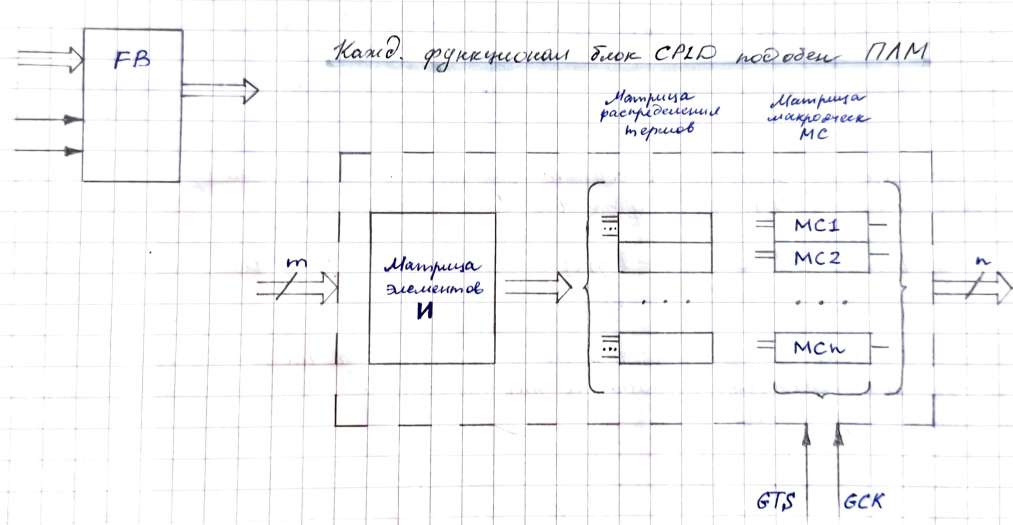 FB
Кажд. функционал блок CPLD подобен ПЛМ
Матрица
распределения
термов
Матрица
макроячеек
МС
m
Матрица
элементов
И
...
МС1
МС2
n
. . .
. . .
...
МСn
GTS
GCK